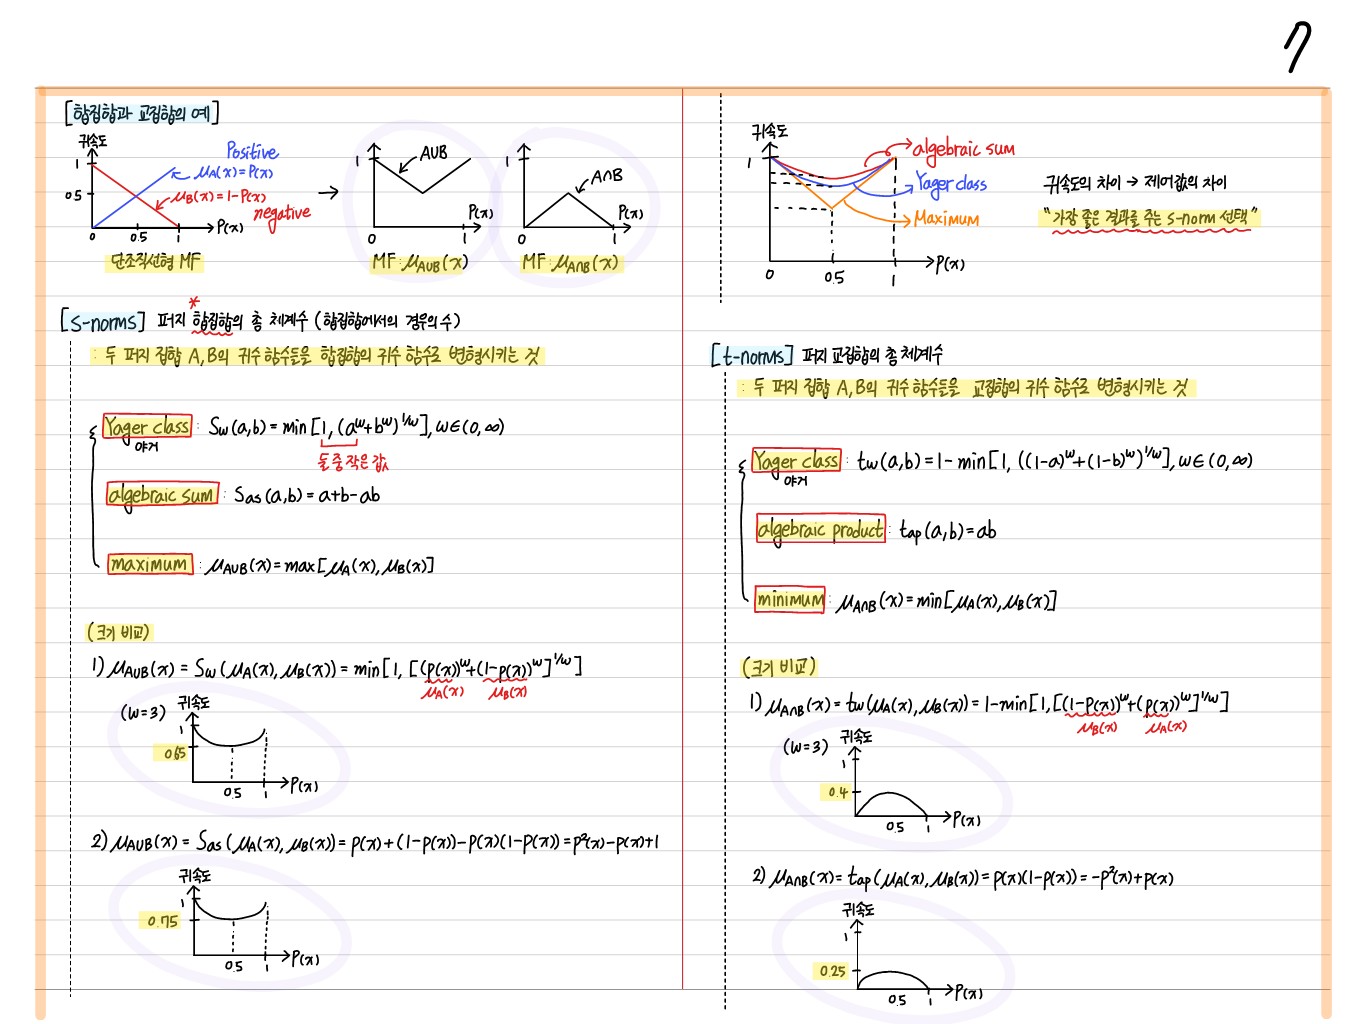 7
[합집합과 교집합의 예]
귀속도
1
0.5
0
0.5
1
P(x)
Positive
μA(x)=P(x)
μB(x)=1-P(x)
negative
단조직선형 MF
1
A∪B
0
1
P(x)
MF: μA∪B(x)
1
A∩B
0
1
P(x)
MF: μA∩B(x)
[s-norms] 퍼지 합집합의 총 체계수 (합집합에서의 경우의 수)
*
: 두 퍼지 집합 A,B의 귀수 함수들을 합집합의 귀수 함수로 변형시키는 것
Yager class : Sw(a,b)=min[1, (a^w+b^w)^1/w], w∈(0,∞)
야거
둘 중 작은 값
algebraic sum : Sas(a,b)=a+b-ab
maximum : μA∪B(x)=max[μA(x), μB(x)]
(크기 비교)
1) μA∪B(x) = Sw(μA(x), μB(x)) = min[1, [(P(x))^w+(1-P(x))^w]^1/w]
μA(x)
μB(x)
(w=3)
귀속도
1
0.65
0.5
1
P(x)
2) μA∪B(x) = Sas(μA(x), μB(x)) = P(x)+(1-P(x))-P(x)(1-P(x))=P²(x)-P(x)+1
귀속도
1
0.75
0.5
1
P(x)
귀속도
1
0
0.5
1
P(x)
algebraic sum
Yager class
Maximum
귀속도의 차이 → 제어값의 차이
"가장 좋은 결과를 주는 s-norm 선택"
[t-norms] 퍼지 교집합의 총 체계수
: 두 퍼지 집합 A,B의 귀수 함수들을 교집합의 귀수 함수로 변형시키는 것
Yager class : tw(a,b)=1-min[1, ((1-a)^w+(1-b)^w)^1/w], w∈(0,∞)
야거
algebraic product : tap(a,b)=ab
minimum : μA∩B(x)=min[μA(x), μB(x)]
(크기 비교)
1) μA∩B(x) = tw(μA(x), μB(x)) = 1-min[1, [(1-P(x))^w+(P(x))^w]^1/w]
μB(x)
μA(x)
(w=3)
귀속도
1
0.4
0.5
1
P(x)
2) μA∩B(x)=tap(μA(x), μB(x))=P(x)(1-P(x))=-P²(x)+P(x)
귀속도
1
0.25
0.5
1
P(x)